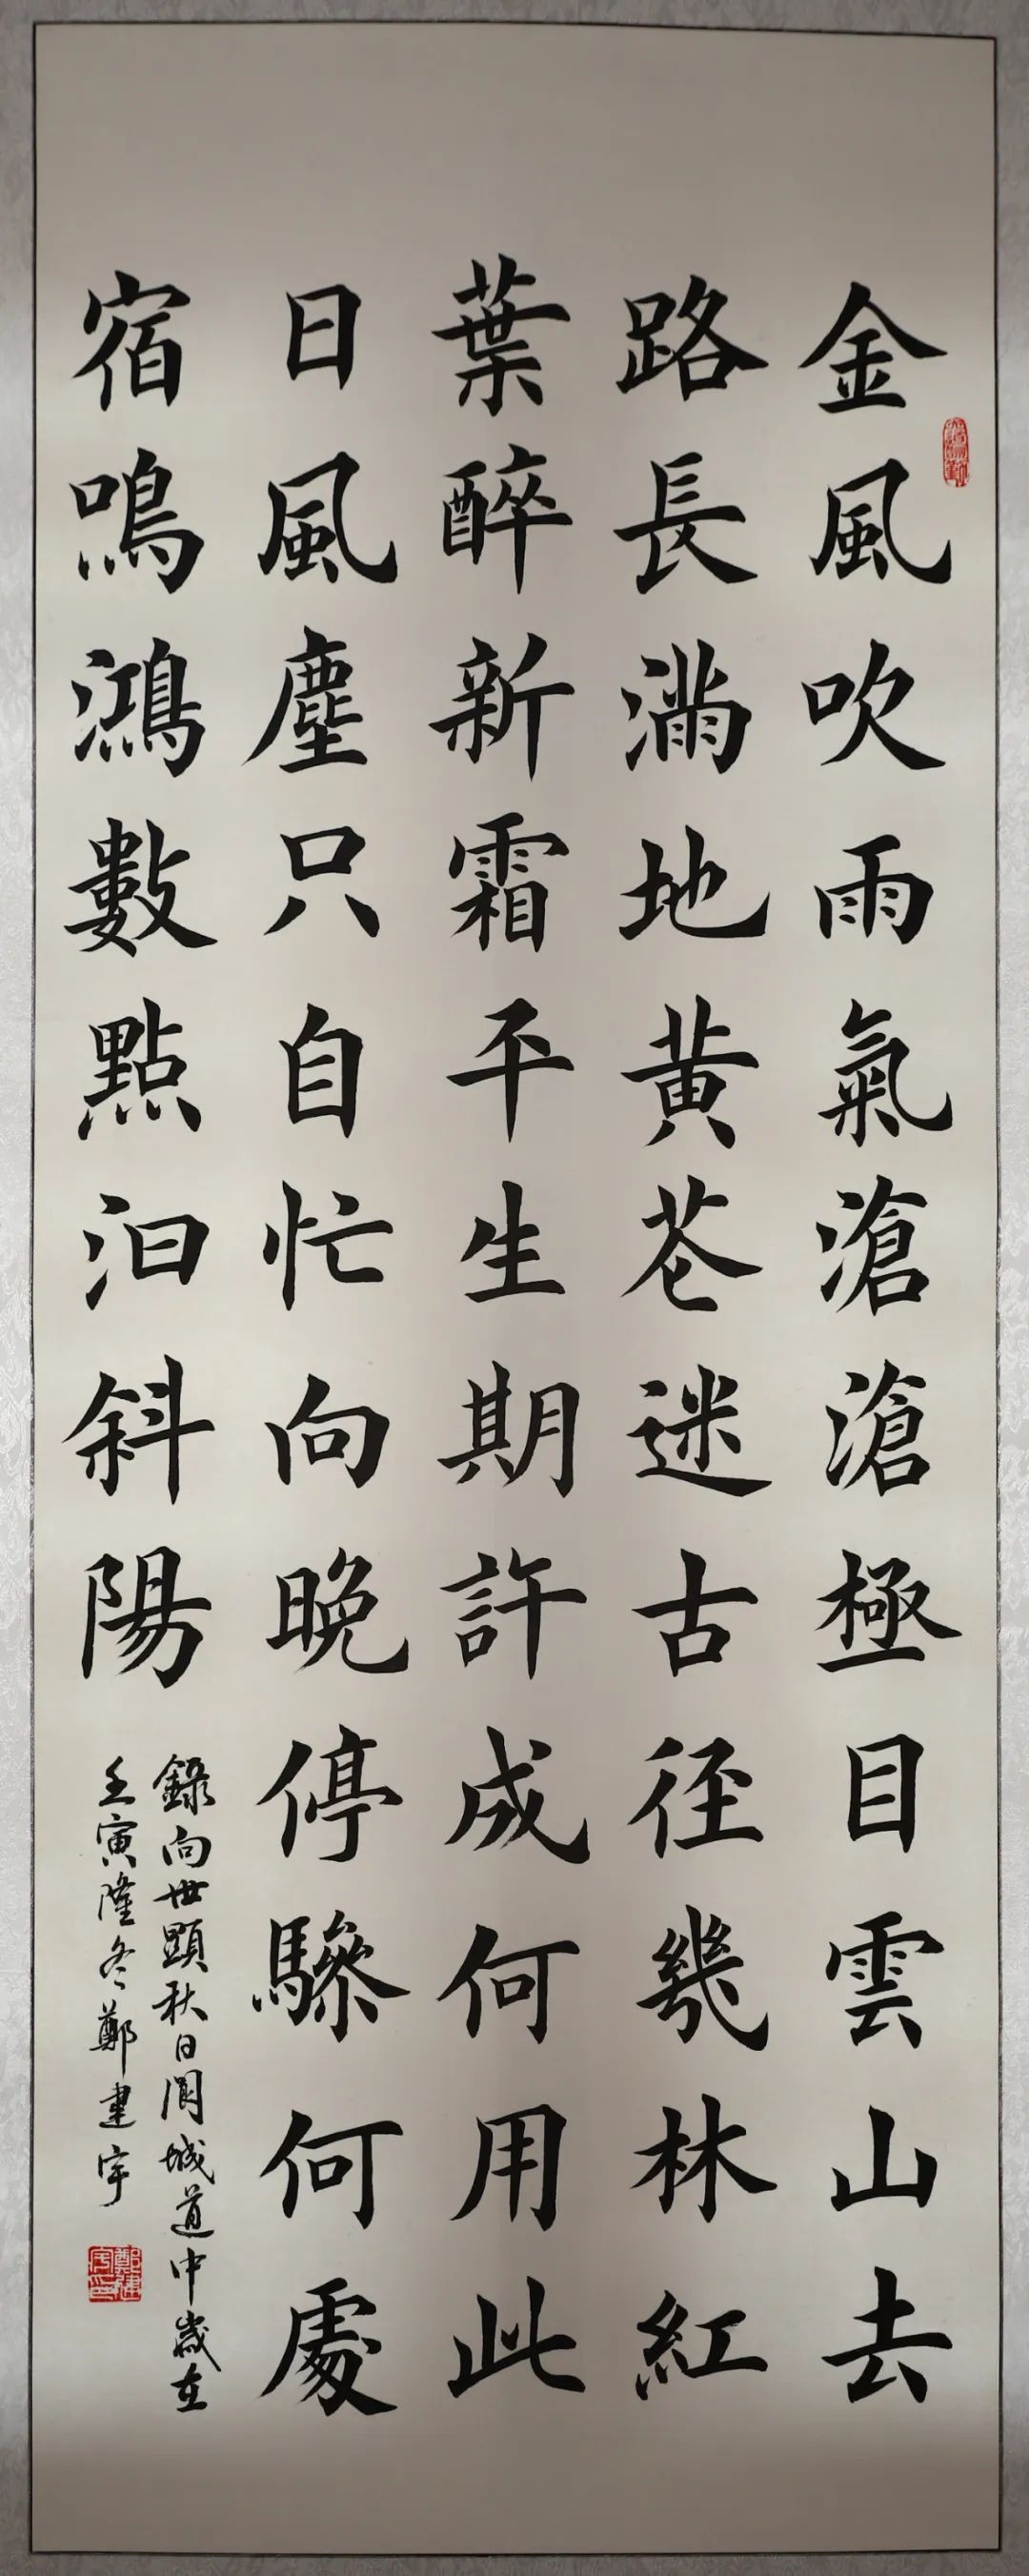 金風吹雨氣滄滄極目雲山去
路長滿地黃苍迷古径幾林紅
葉醉新霜平生期許成何用此
日風塵只自忙向晚停驂何處
宿鳴鴻數點汩斜陽
錄向世顯秋日閬城道中歲在
壬寅隆冬鄭建宇
鄭建宇印